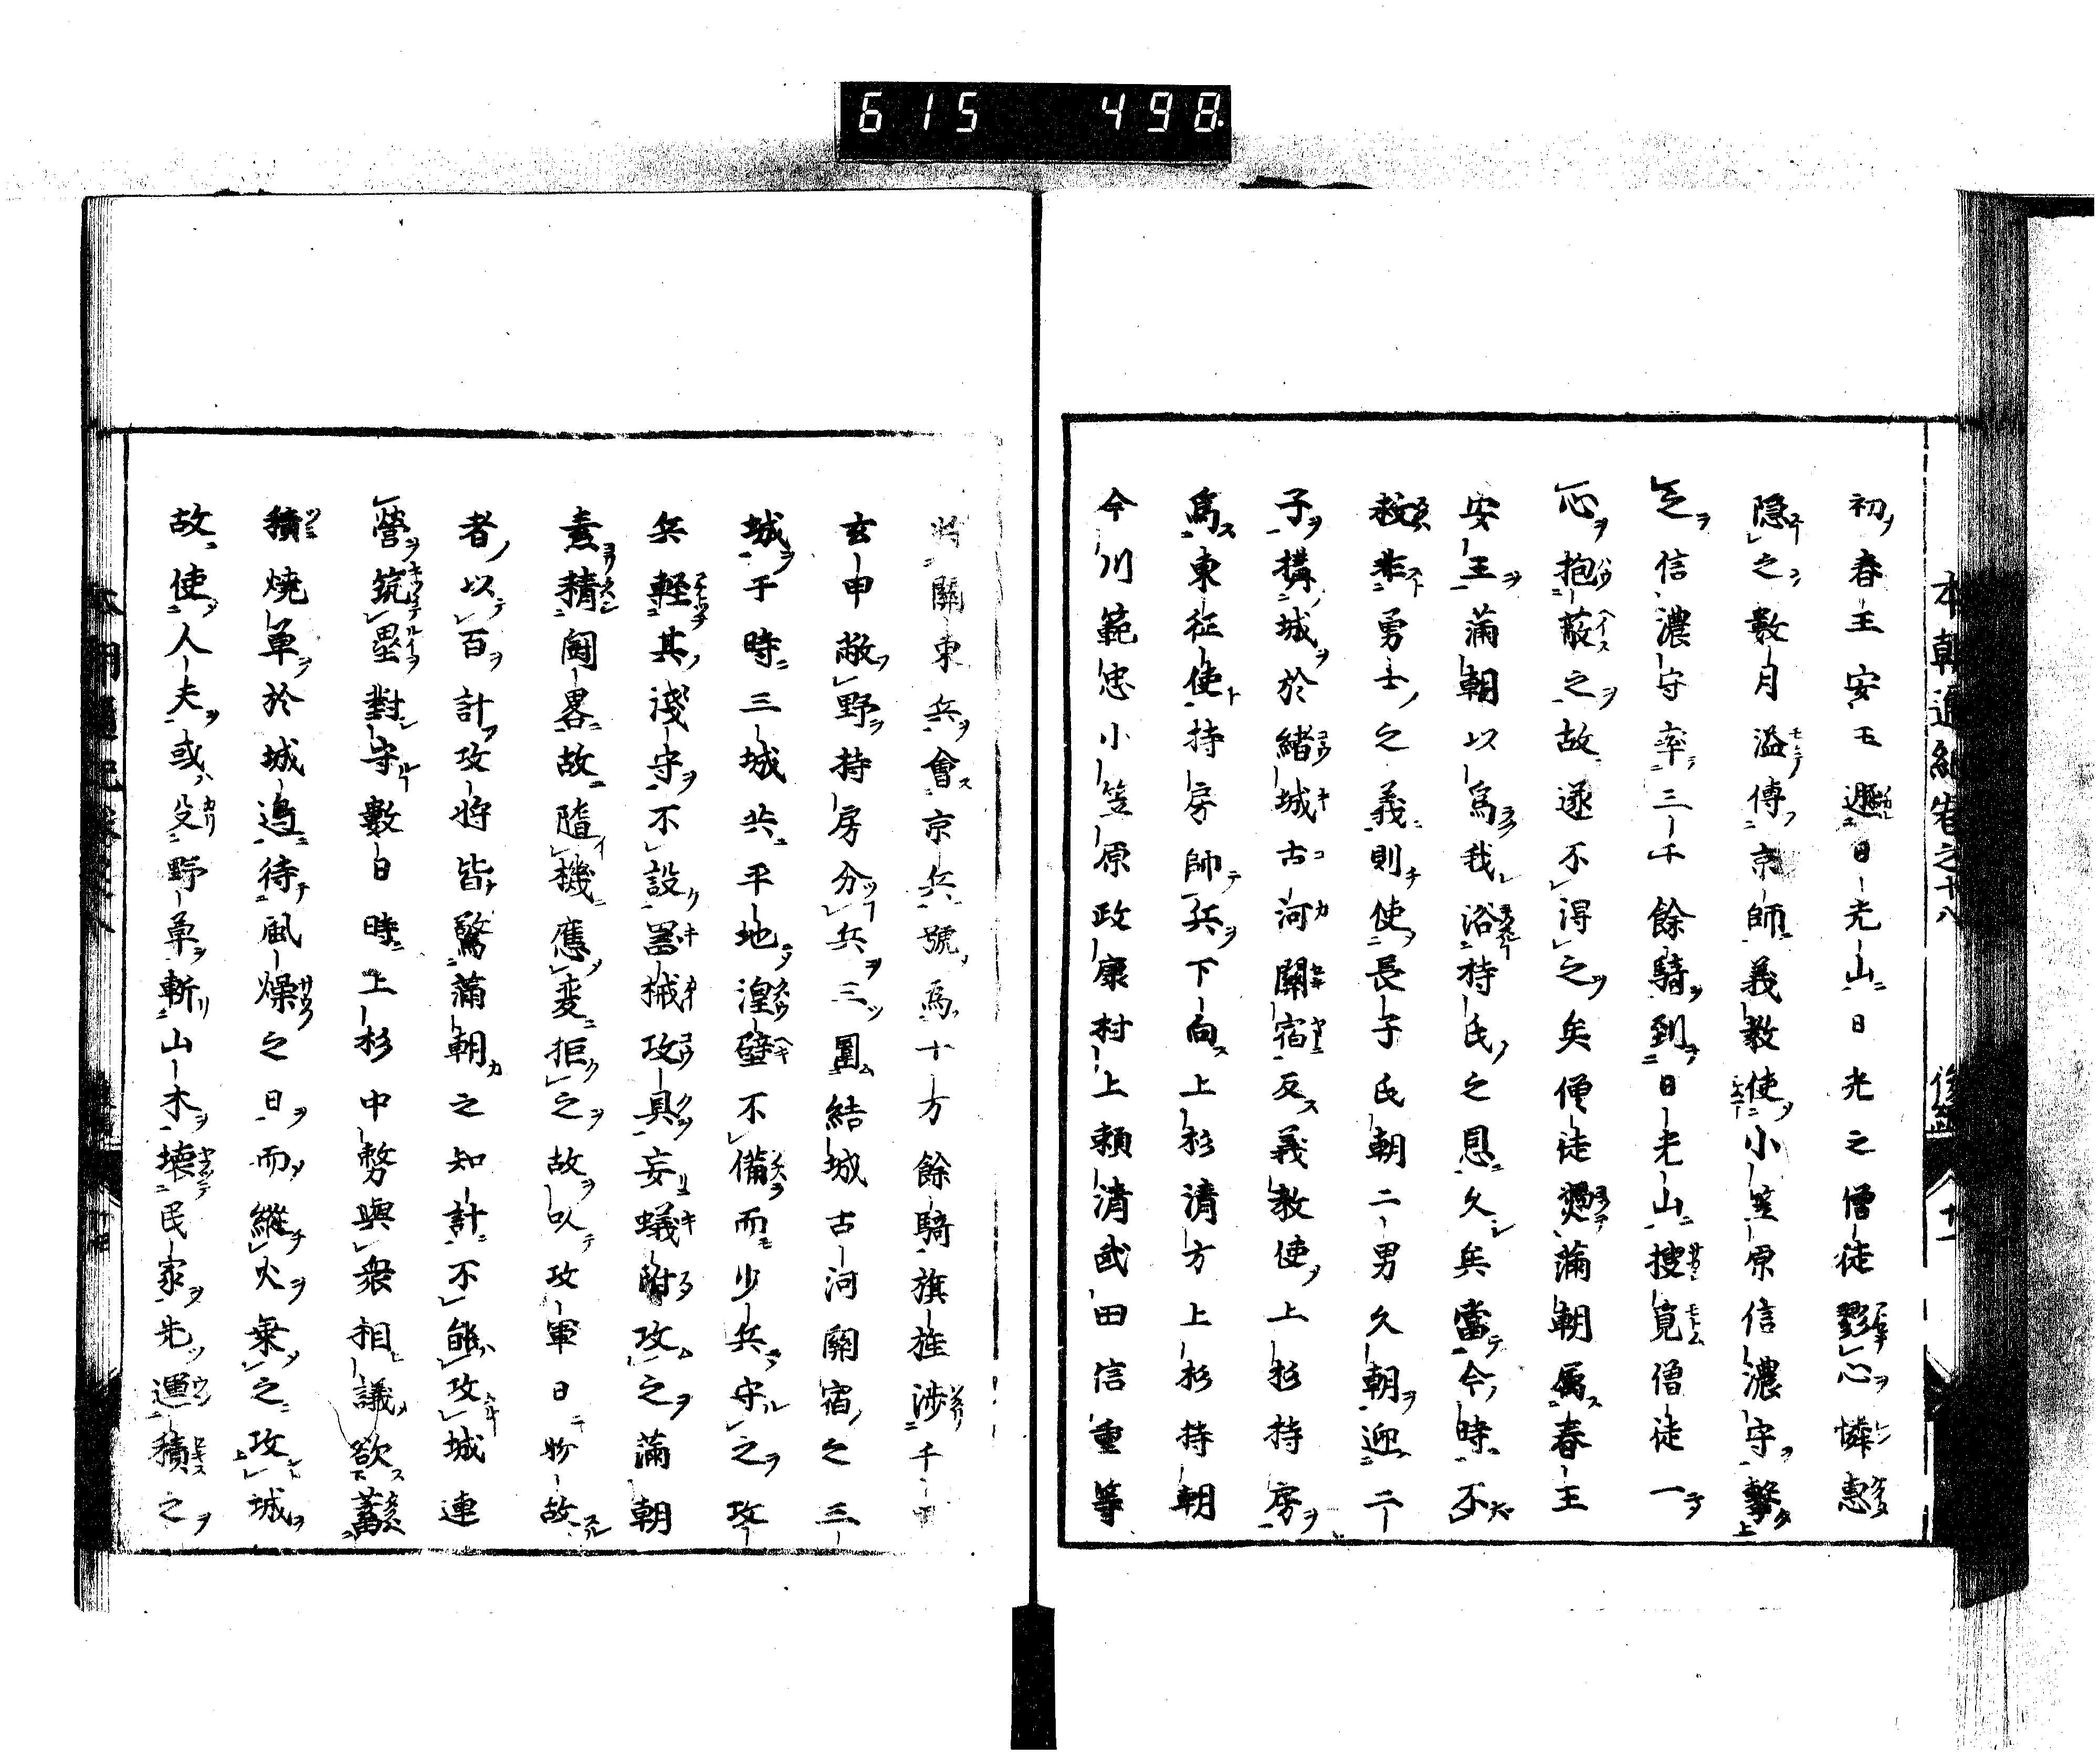 615 498
本朝通紀卷之十八 後編 十一
初春王安王遯日光山日光之僧徒勠心憐惠
隱之數月溢傳京師義教使小笠原信濃守擊
之信濃守率三千餘騎到日光山搜覓僧徒一
心抱蔽之故遂不得之矣僧徒爕滿朝屬春王
安王滿朝以爲我浴持氏之恩久矣當今時不
救非勇士之義則使長子氏朝二男久朝迎二
子搆城於緒城古河關宿反義教使上杉持房
爲東征使持房帥兵下向上杉清方上杉持朝
今川範忠小笠原政康村上賴清武田信重等
將關東兵會京兵號爲十万餘騎旗旌涉千
玄甲敝野持房分兵三圍結城古河關宿之三
城于時三城共平地湟壁不備而少兵守之攻
兵輕其淺守不設噐械攻具妄蟻附攻之滿朝
素精鬪畧故隨機應変拒之故以攻軍日物故
者以百計攻將皆驚滿朝之知計不能攻城連
營筑壘對守數日時上杉中務與衆相議欲蓄
積燒草於城邉待風燥之日而縱火乗之攻城
故使人夫或殳野草斬山木壊民家先運積之